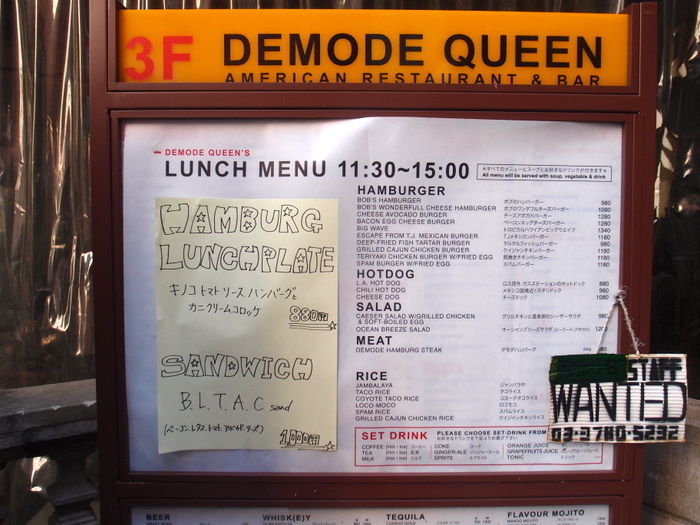 3F DEMODE QUEEN
AMERICAN RESTAURANT & BAR
DEMODE QUEEN'S
LUNCH MENU 11:30~15:00
※すべてのメニューにスープとお好きなドリンクが付きます※
All menu will be served with soup, vegetable & drink
HAMBURG
LUNCHPLATE
キノコトマトソースハンバーグと
カニクリームコロッケ
880円
SANDWICH
B.L.T.A.C sand
(ベーコン、レタス、トマト、アボカド、チーズ)
1,000円
HAMBURGER
BOB'S HAMBURGER ボブのハンバーガー 980
BOB'S WONDERFULL CHEESE HAMBURGER ボブのワンダフルチーズバーガー 1080
CHEESE AVOCADO BURGER チーズアボカドバーガー 1280
BACON EGG CHEESE BURGER ベーコンエッグチーズバーガー 1260
BIG WAVE トロピカルハワイアンビッグウエイブ 1340
ESCAPE FROM T.J. MEXICAN BURGER T.J.メキシカンバーガー 1180
DEEP-FRIED FISH TARTAR BURGER タルタルフィッシュバーガー 980
GRILLED CAJUN CHICKEN BURGER ケイジャンチキンバーガー 1180
TERIYAKI CHICKEN BURGER W/FRIED EGG 照焼きチキンバーガー 1180
SPAM BURGER W/FRIED EGG スパムバーガー 1180
HOTDOG
L.A. HOT DOG ロス郊外 ガスステーションのホットドック 880
CHILI HOT DOG メキシコ国境近くのチリドック 980
CHEESE DOG チーズドック 1080
SALAD
CAESER SALAD W/GRILLED CHICKEN グリルドチキンと温泉卵のシーザーサラダ 980
& SOFT-BOILED EGG
OCEAN BREEZE SALAD オーシャンブリーズサラダ
MEAT
DEMODE HAMBURG STEAK デモデハンバーグ
RICE
JAMBALAYA ジャンバラヤ
TACO RICE タコライス
COYOTE TACO RICE コヨーテタコライス
LOCO-MOCO ロコモコ
SPAM RICE スパムライス
GRILLED CAJUN CHICKEN RICE ケイジャンチキンライス
STAFF
WANTED
03-3780-5232
SET DRINK PLEASE CHOOSE SET-DRINK FROM
COFFEE (Hot / Ice) コーヒー COKE コーク ORANGE JUICE オレンジジュース
TEA (Hot / Ice) 紅茶 GINGER-ALE ジンジャーエール GRAPEFRUITS JUICE グレープフルーツジュース
MILK (Hot / Ice) ミルク SPRITE スプライト TONIC トニック
BEER WHISK(E)Y TEQUILA FLAVOUR MOJITO